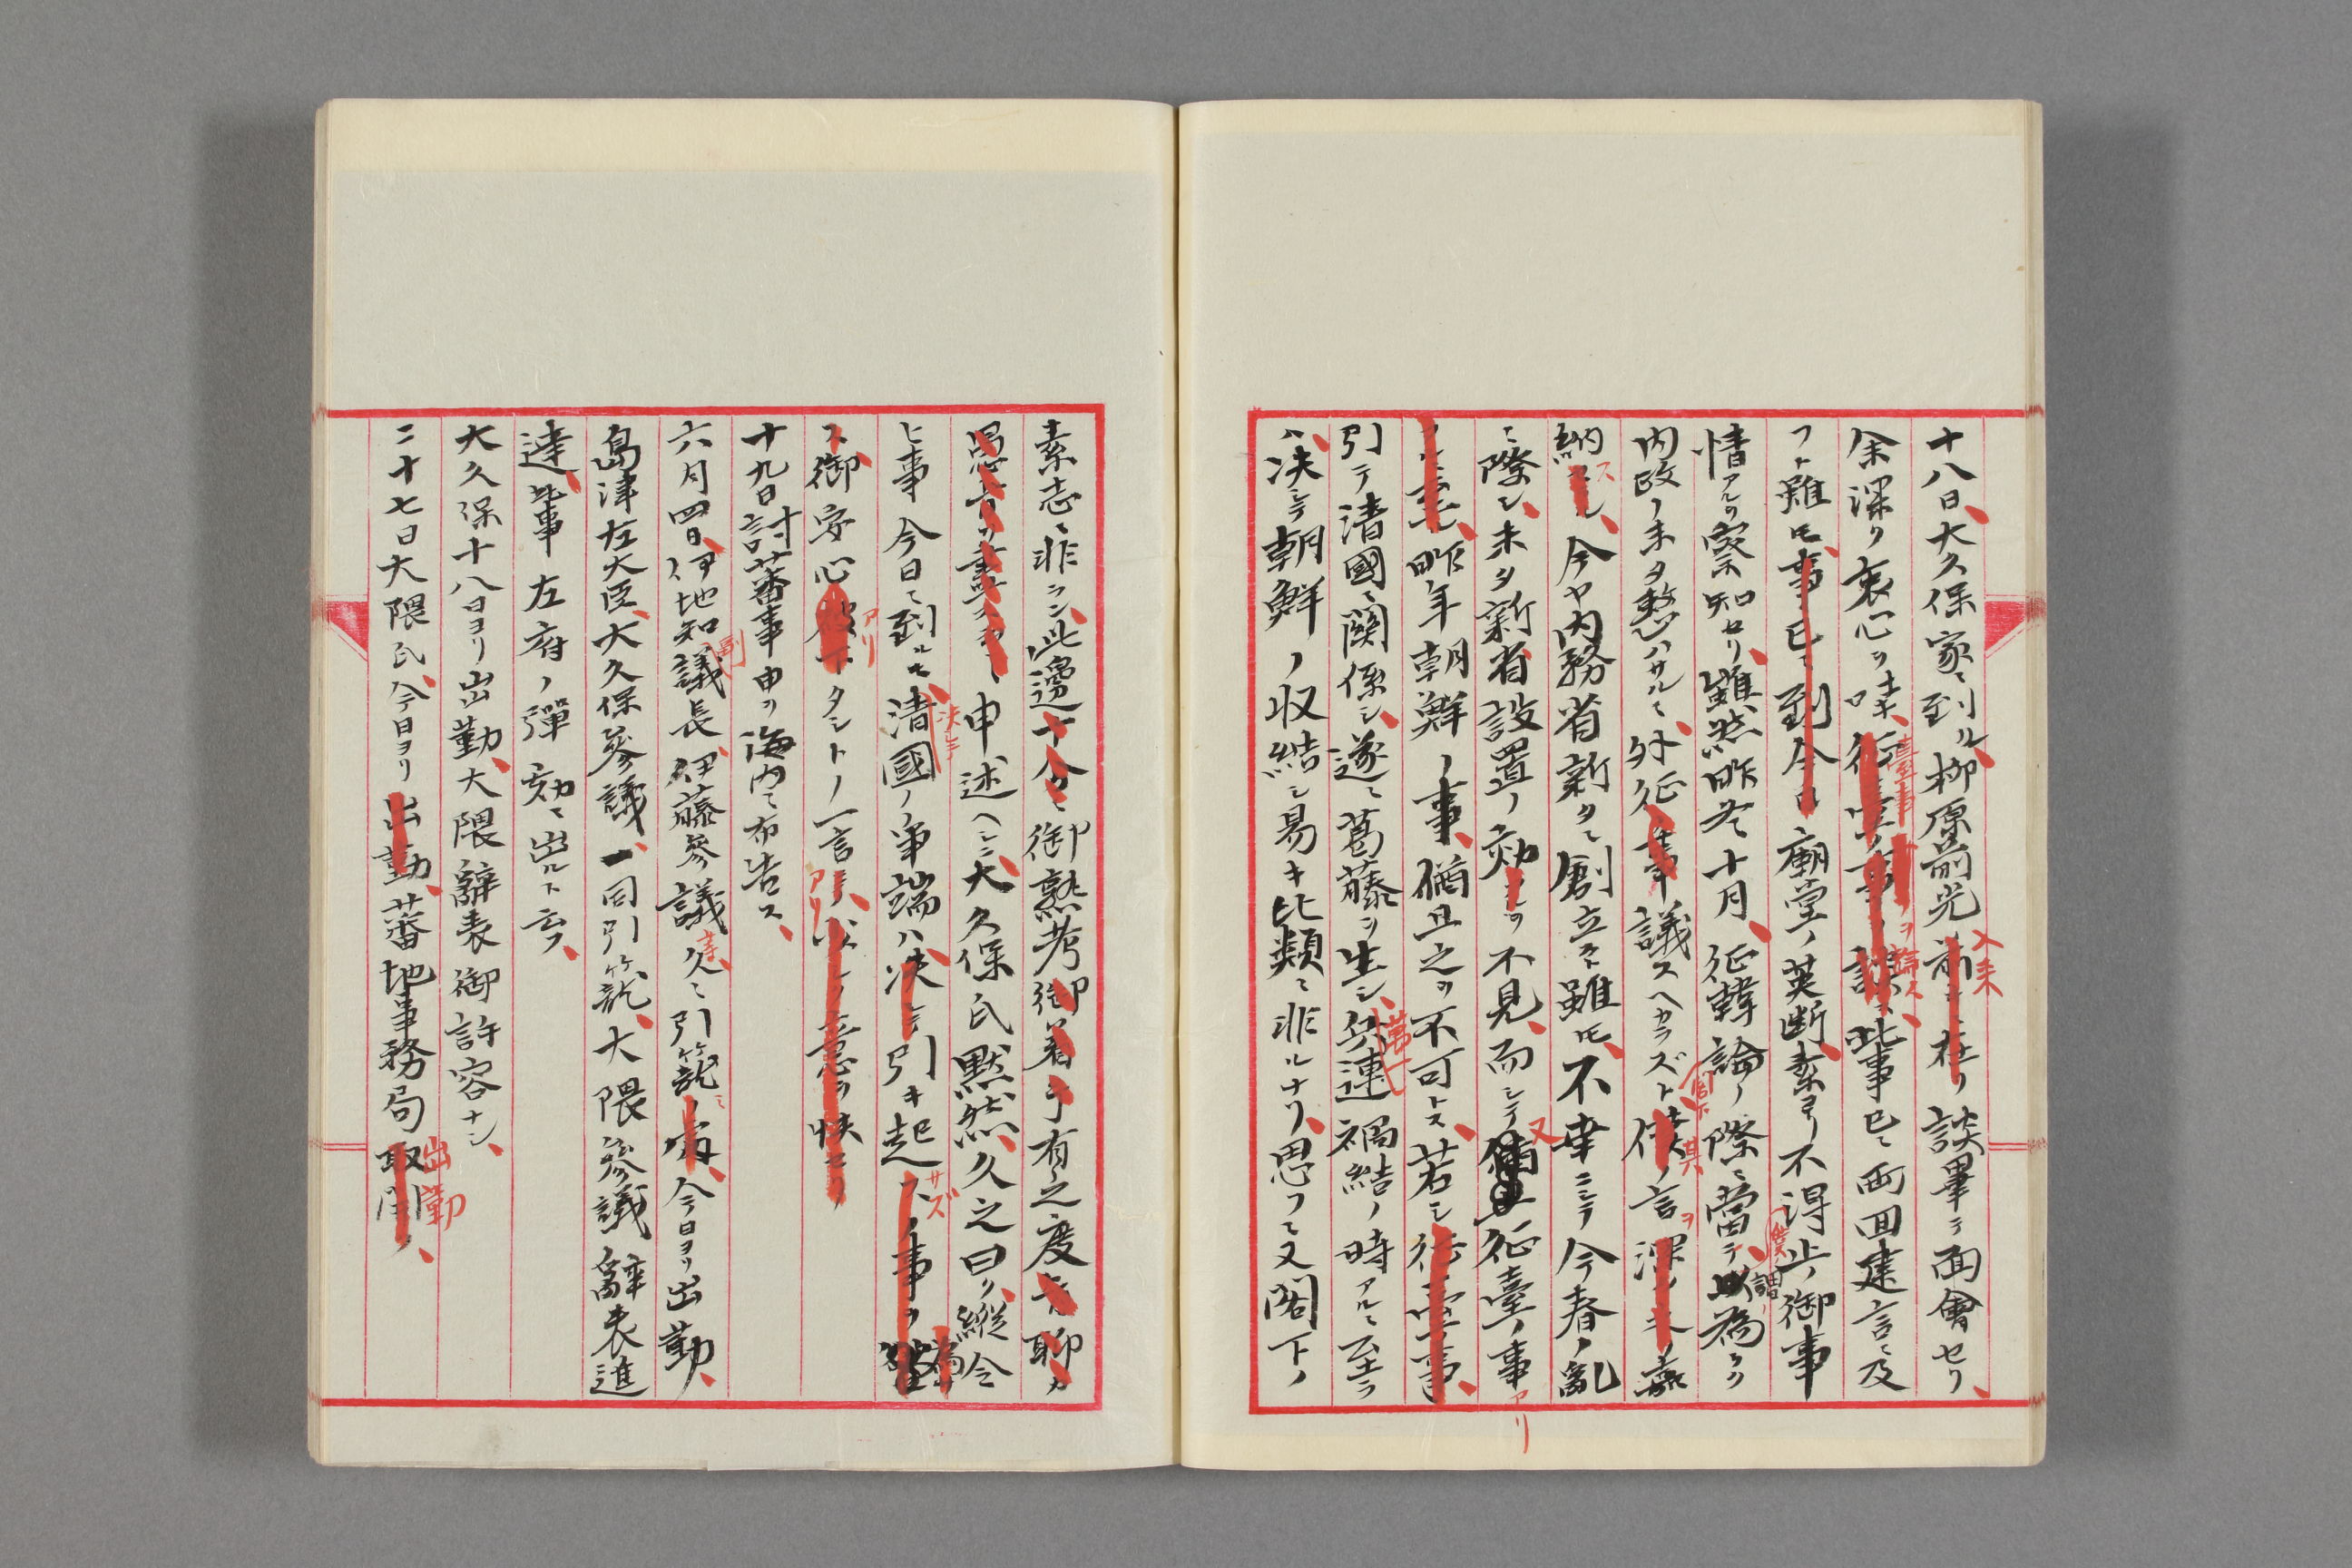 十八日、大久保家ニ到ル、柳原前光前キニ在リ談畢テ面會セリ、
入来
余深ク衷心ヲ吐キ、征臺ノ事ヲ談ス、此事已ニ両回建言ニ及
臺事
ヲ論ス、
フト雖モ、事已ニ到今日廟堂ノ英断、素ヨリ不得止ノ御事
情アルヲ察知セリ、雖然昨冬十月、征韓論ノ際ニ當テ、以為ラク
僕
謂
内政ノ未タ整ハサルニ、外征ノ事ヲ議スヘカラズト、僕ノ言深ク嘉
閣下
其
ヲ
納セラル、今ヤ内務省新タニ創立スト雖モ、不幸ニシテ今春ノ亂
ス
ニ際シ、未タ新省設置ノ効アルヲ不見、而シテ征臺ノ事
又
アリ
昨年朝鮮ノ事、猶且之ヲ不可トス、若シ征臺ノ事、
引テ清國ニ關係シ、遂ニ葛藤ヲ生シ、兵連禍結ノ時アルニ至ラ
ハ、决シテ朝鮮ノ収結シ易キ比類ニ非ルナリ、思フニ又閣下ノ
素志ニ非ラン、此邊十分ニ御熟考御着手有之度旨聊カ
申述ヘシニ、大久保氏黙然、久之曰ク、縦令
ヒ事今日ニ到ルモ、清國ノ事端ハ、决シテ引キ起スノ事ヲ
决シテ
サズ
為
ス、御安心被下タシトノ一言
アリ
アリ
十九日討蕃事由ヲ海内ニ布告ス、
六月四日、伊地知議長、伊藤參議久ニ引籠ノ處、今日ヨリ出勤、
副
島津左大臣、大久保參議、一同引籠、大隈參議辭表進
達、此事左府ノ彈効ニ出ルト云フ、
大久保十八日ヨリ出勤、大隈辭表御許容ナシ、
二十七日大隈氏、今日ヨリ出勤、蕃地事務局取開ク、
出勤